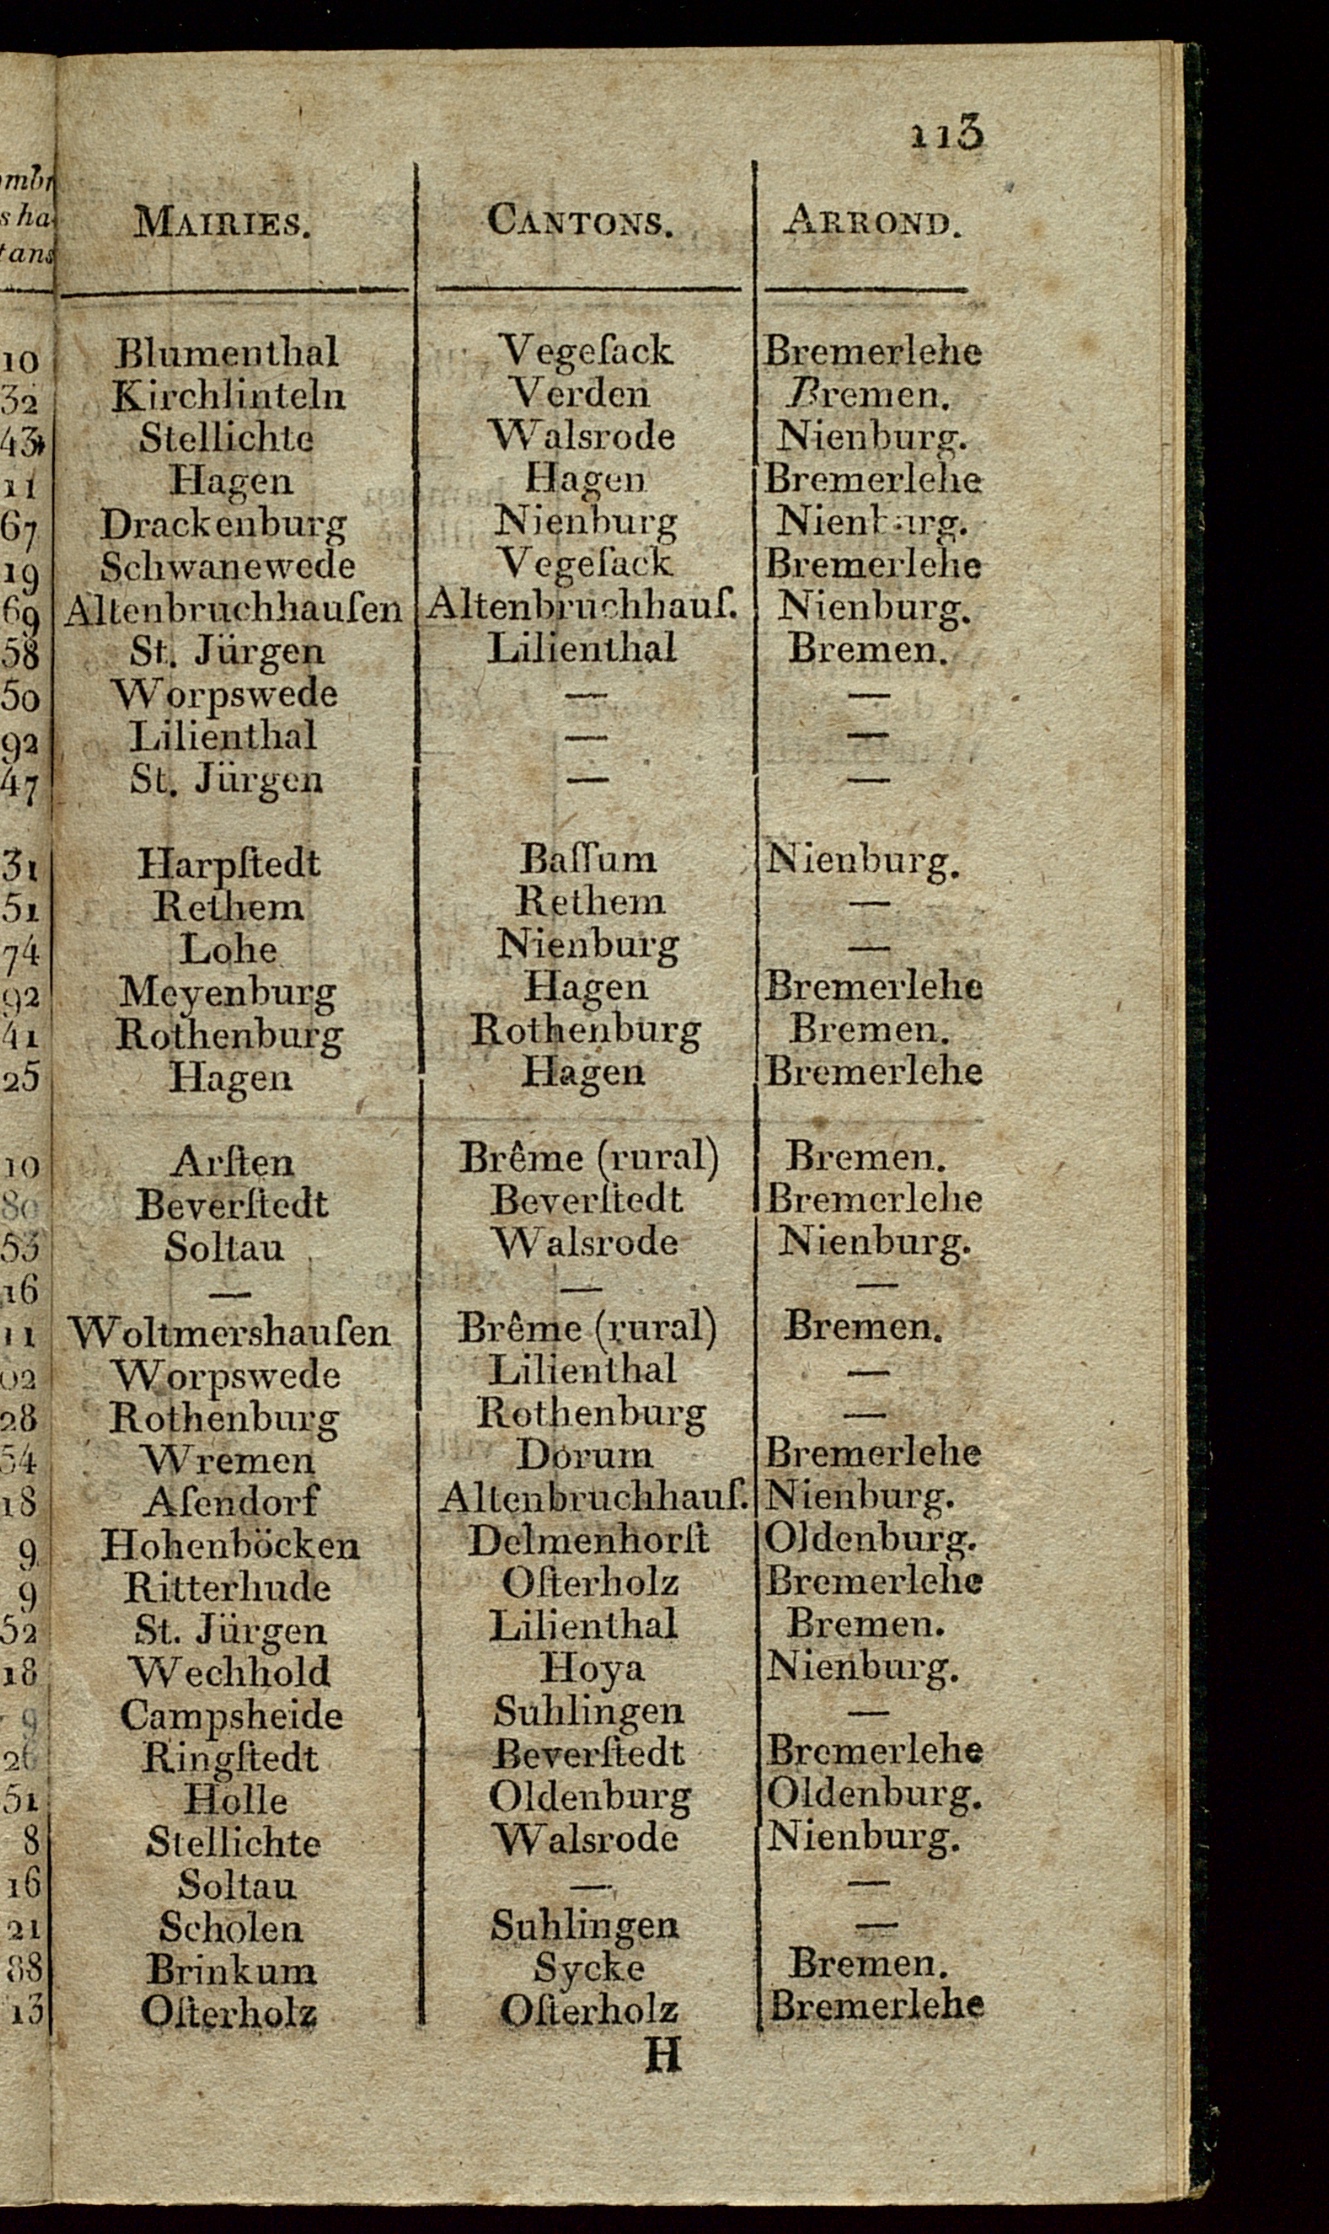 113
MAIRIES. CANTONS. ARROND.
10 Blumenthal Vegeſack Bremerlehe
32 Kirchlinteln Verden Bremen.
43 Stellichte Walsrode Nienburg.
11 Hagen Hagen Bremerlehe
67 Drackenburg Nienburg Nienburg.
19 Schwanewede Vegeſack Bremerlehe
69 Altenbruchhauſen Altenbruchhauſ. Nienburg.
58 St. Jürgen Lilienthal Bremen.
50 Worpswede — —
92 Lilienthal — —
47 St. Jürgen — —
31 Harpſtedt Baſſum Nienburg.
51 Rethem Rethem —
74 Lohe Nienburg —
92 Meyenburg Hagen Bremerlehe
41 Rothenburg Rothenburg Bremen.
25 Hagen Hagen Bremerlehe
10 Arſten Brême (rural) Bremen.
80 Beverſtedt Beverſtedt Bremerlehe
53 Soltau Walsrode Nienburg.
16 — — —
11 Woltmershauſen Brême (rural) Bremen.
02 Worpswede Lilienthal —
28 Rothenburg Rothenburg —
54 Wremen Dorum Bremerlehe
18 Aſendorf Altenbruchhauſ. Nienburg.
9 Hohenböcken Delmenhorſt Oldenburg.
9 Ritterhude Oſterholz Bremerlehe
52 St. Jürgen Lilienthal Bremen.
18 Wechhold Hoya Nienburg.
9 Campsheide Suhlingen —
26 Ringſtedt Beverſtedt Bremerlehe
51 Holle Oldenburg Oldenburg.
8 Stellichte Walsrode Nienburg.
16 Soltau — —
21 Scholen Suhlingen —
88 Brinkum Sycke Bremen.
13 Oſterholz Oſterholz Bremerlehe
H